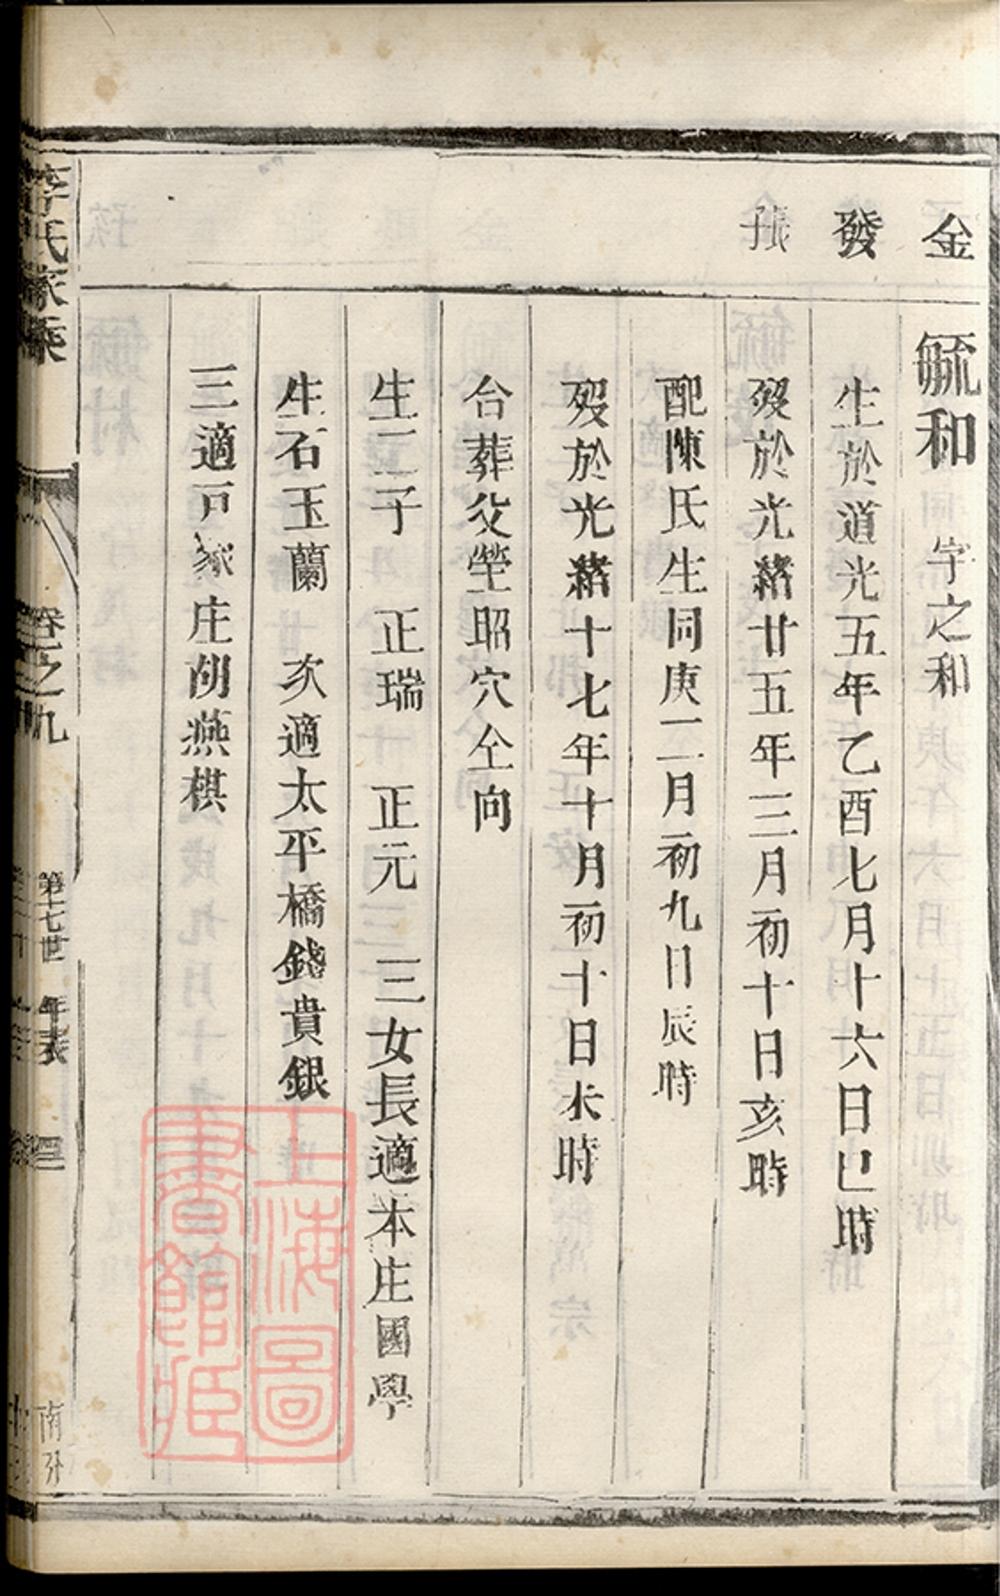 金
發
張
毓和 字之和
生於道光五年乙酉七月十六日巳時
歿於光緒廿五年三月初十日亥時
配陳氏生同庚二月初九日辰時
歿於光緒十七年十月初十日未時
台葬父塋昭穴仝向
生二子 正瑞 正元 三女長適本庄國學
生石玉蘭 次適太平橋錢貴銀
三適戸家庄胡燕棋
李氏家乘
卷之九
第十七世 年表
上海圖
書館藏